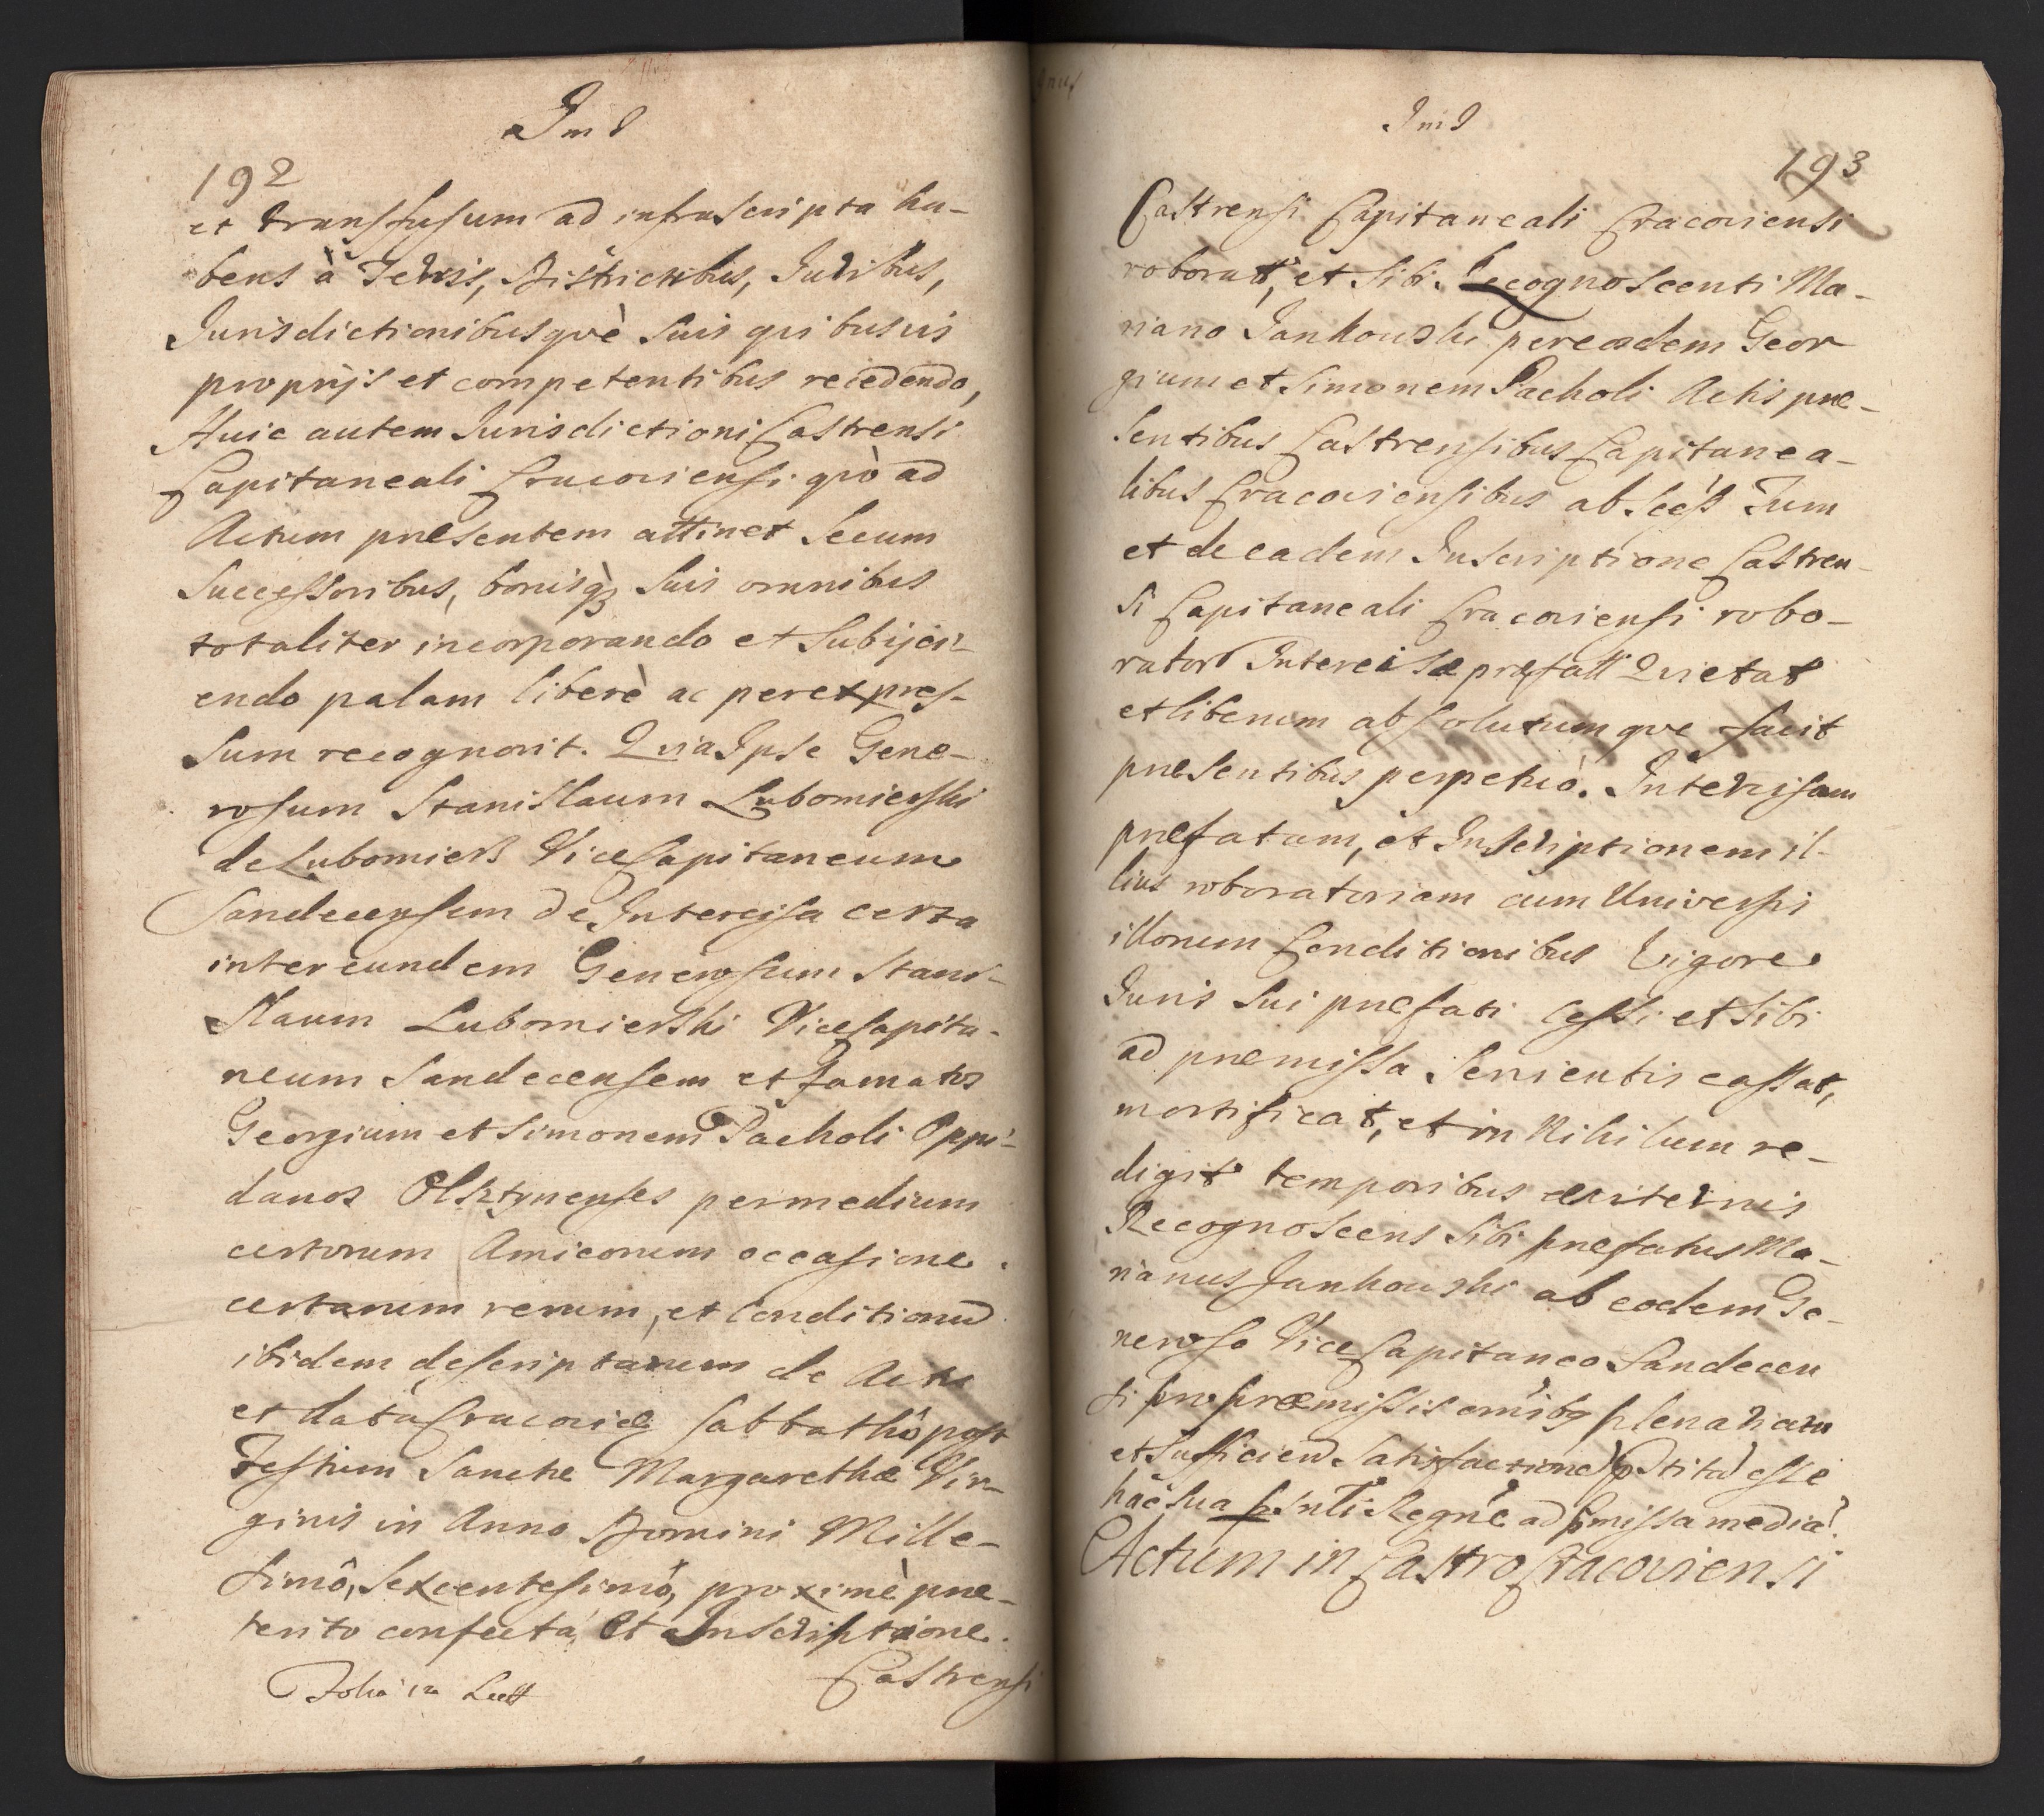 Ind
192
et transfusum ad infrascripta ha-
bens à Terris, Districtibus, Juribus,
Jurisdictionibusqvè Suis qvibusvis
proprijs et competentibus recedendo,
Huic autem Jurisdictioni Castrensi
Capitaneali Cracoviensi qvò ad
Actum præsentem attinet Secum
Successoribus, bonisq̀ Suis omnibus
totaliter incorporando et Subijci-
endo palam liberè ac per expres-
Sum recognovit. Qvia Ipse Gene-
rosum Stanislaum Lubomierski
de Lubomierz ViceCapitaneum
Sandecensem de Intercisa certa
inter eundem Generosum Stani-
Slaum Lubomierski ViceCapita-
neum Sandecensem et Famatos
Georgium et Simonem Pacholi Oppi-
danos Olsztynenses per medium
certorum Amicorum occasione
certarum rerum, et Conditionū
ibidem descriptarum de Actu
et data Cracoviæ Sabbathô post
Festum Sanctæ Margarethæ Vir-
ginis in Anno Domini Mille-
simô, Sexcentesimô, proximè præ-
terito confecta, Et Inscriptione
Castrensi

Ind
193
Castrensi Capitaneali Cracoviensi
roboratt, et Sibi Recognoscenti Ma-
riano Jankowski per eosdem Geor
gium et Simonem Pacholi Actis præ-
Sentibus Castrensibus Capitanea-
libus Cracoviensibus ab Tum
et de eadem Inscriptione Castren-
Si Capitaneali Cracoviensi robo-
rator Intercisæ præfatt Qvietat
et liberum absolutumqve facit
præsentibus perpetuò. Intercisam
præfatam, et Inscriptionem il-
lius roboratoriam cum Universis
illorum Conditionibus Vigore
Juris Sui præfati Cessi et Sibi
ad præmissa Servientis cassat,
mortificat, et in Nihilum re-
digit temporibus æviternis
Recognoscens Sibi præfatus Ma-
rianus Jankowski ab eodem Ge-
neroso ViceCapitaneo Sandecen
si pro præmissis omibq plenariam
et Sufficien Satisfactionē pstitā esse
hac Sua pnti Regne ad pmissa mediā.
Actum in Castro Cracoviensi